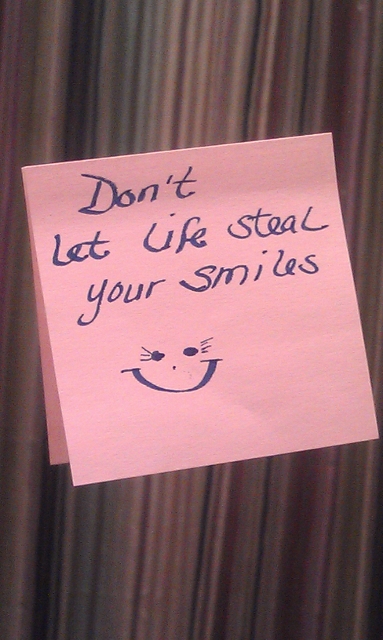 Don't
Let Life steal
your smiles